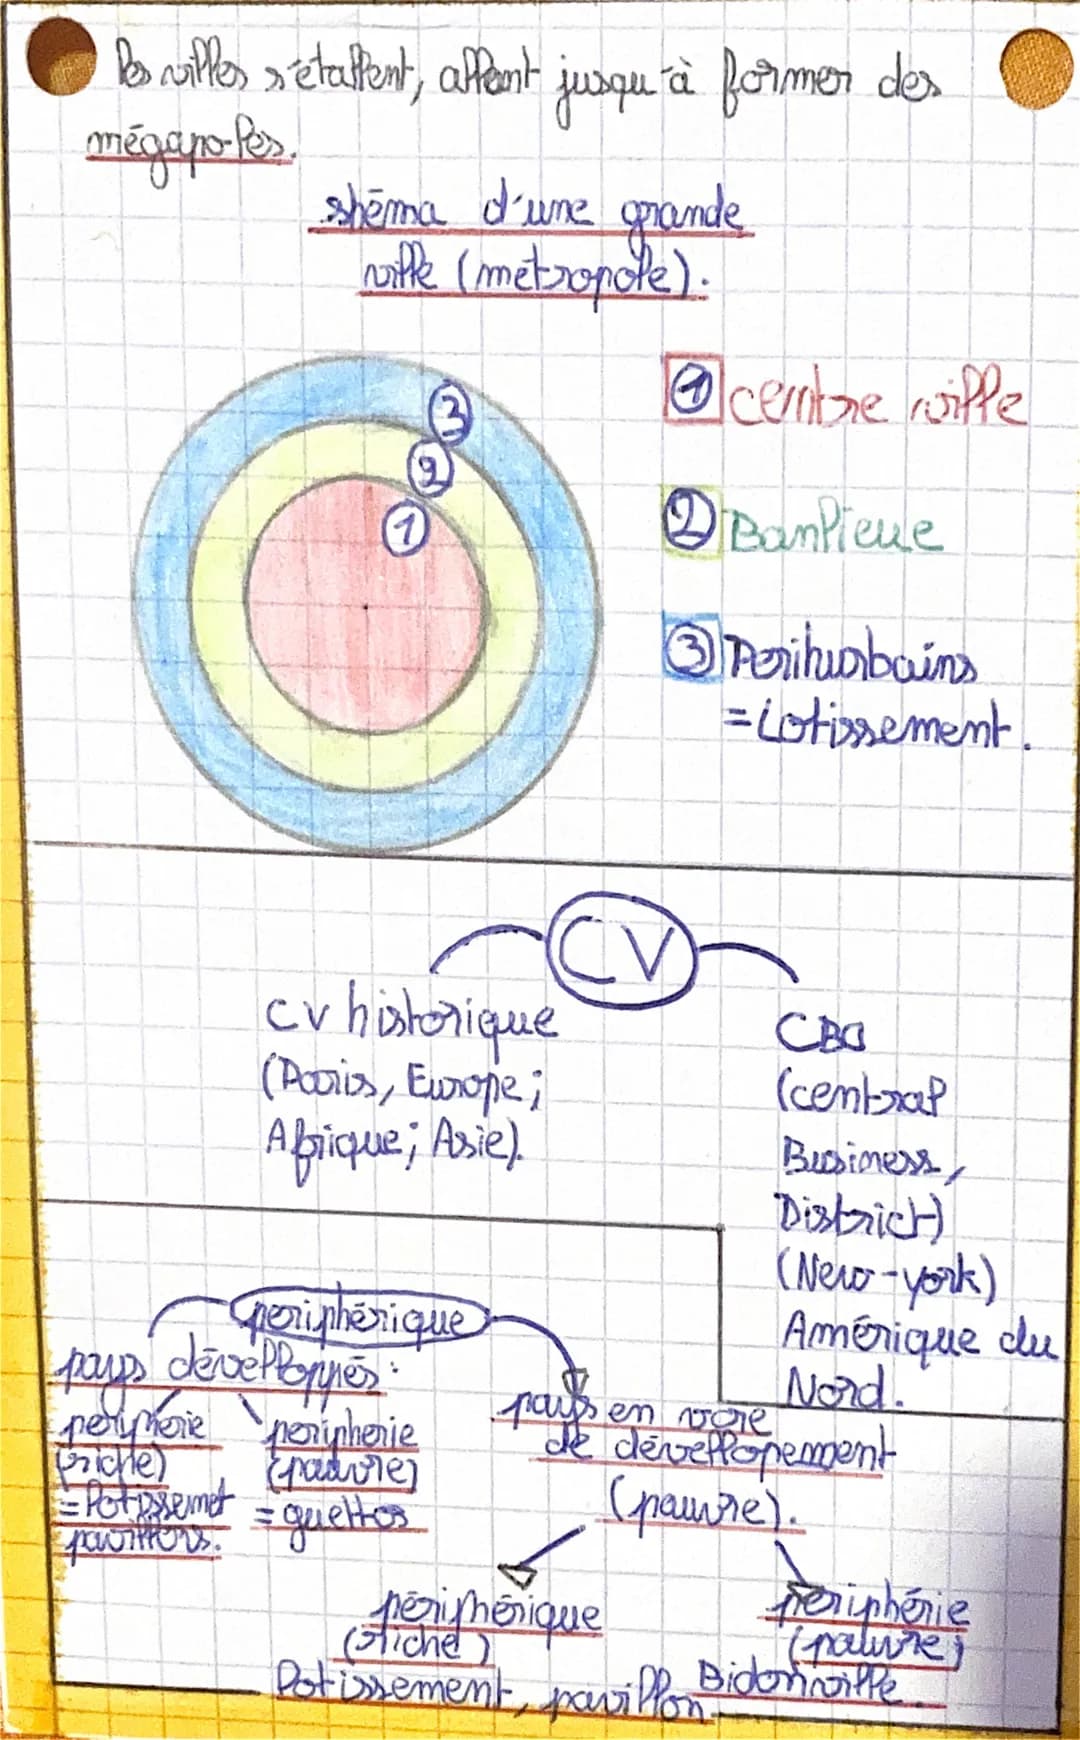 les villes s'étallent, allant jusqu'à former des
mégapoles.
shéma d'une grande
ville (métropole).
3
2
1
1 centre ville
2 Banlieue
3 Perihurbains
= Lotissement.
CV
CV historique
(Paris, Europe;
Afrique; Asie).
CBD
(central
Business,
District)
(New-york)
Amérique du
Nord.
periphérique
pays dévelloppés:
periphérie
(riche)
=lotissemet
pavillons.
peripherie
(pauvre)
= guettos
pays en voie
de dévellopement
(pauvre).
périphérique
(riche)
lotissement, pavillon
periphérie
(pauvre)
Bidonville